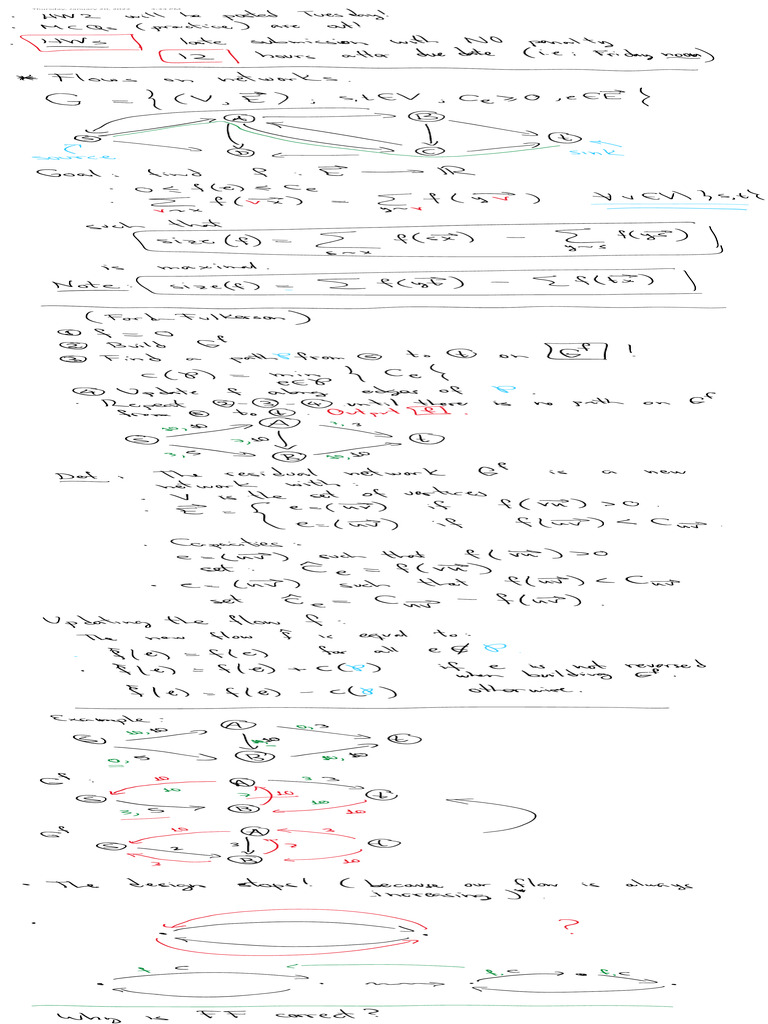 · HW2 will be posted Tuesday!
· MCQs (practice) are out!
· HWs late submission with NO penalty
12 hours after due date (i.e: Friday noon)
* Flows on networks.
G = { (V, E⃗), s,t∈V, Ce ≥ 0, e∈E⃗ }
A B
s t
D C
source sink
Goal: find f: E⃗ → ℝ
· 0 ≤ f(e) ≤ Ce
· Σ_{v~x} f(vx⃗) = Σ_{y~v} f(yv⃗) ∀ v∈V\{s,t}
such that
size(f) = Σ_{s~x} f(sx⃗) − Σ_{y~s} f(ys⃗)
is maximal.
Note: size(f) = Σ f(yt⃗) − Σ f(tx⃗)
(Ford-Fulkerson)
① f = 0
② Build G^f
③ Find a path P from s to t on G^f !
c(P) = min_{e∈P} { Ce }
④ Update f along edges of P.
· Repeat ②-③-④ until there is no path on G^f
from s to t. Output f.
10,10 A 3,3
s 7,10 t
3,5 B 10,10
Def: The residual network G^f is a new
network with:
· V is the set of vertices
· E⃗ = { e=(uv⃗) if f(vu⃗) > 0.
e=(uv⃗) if f(uv⃗) < C_uv⃗.
· Capacities:
e=(uv⃗) such that f(vu⃗) > 0
set: Ĉe = f(vu⃗)
· e=(uv⃗) such that f(uv⃗) < C_uv⃗
set Ĉe = C_uv⃗ − f(uv⃗).
Updating the flow f:
The new flow f̂ is equal to:
· f̂(e) = f(e) for all e ∉ P
· f̂(e) = f(e) + c(P) if e is not reversed
when building G^f.
f̂(e) = f(e) − c(P) otherwise.
Example:
10,10 A 0,3
s 10 t
0,5 B 10,10
G^f: 10 A 3 3
s 10 7 10 t
3,5 B 10 10
G^f 10 A 3
s 2 3 2 t
3 B 10
- The design stops! (because our flow is always
increasing)
?
f C f,C f,C
Why is FF correct?